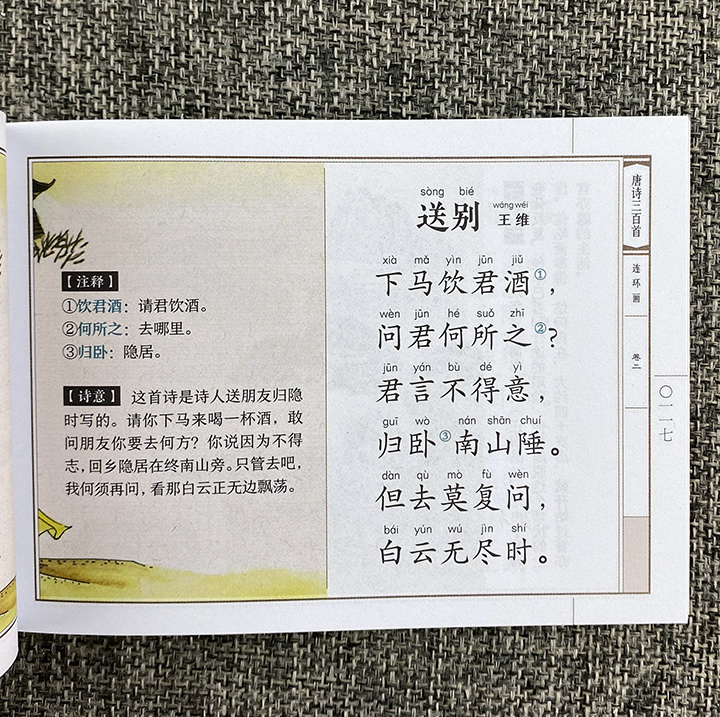 【注释】
①饮君酒：请君饮酒。
②何所之：去哪里。
③归卧：隐居。
【诗意】 这首诗是诗人送朋友归隐
时写的。请你下马来喝一杯酒，敢
问朋友你要去何方？你说因为不得
志，回乡隐居在终南山旁。只管去吧，
我何须再问，看那白云正无边飘荡。
sòng bié
wáng wéi
送别 王维
xià mǎ yìn jūn jiǔ
下马饮君酒①，
wèn jūn hé suǒ zhī
问君何所之②？
jūn yán bù dé yì
君言不得意，
guī wò nán shān chuí
归卧③南山陲。
dàn qù mò fù wèn
但去莫复问，
bái yún wú jìn shí
白云无尽时。
唐诗三百首
连环画
卷二
〇一一七